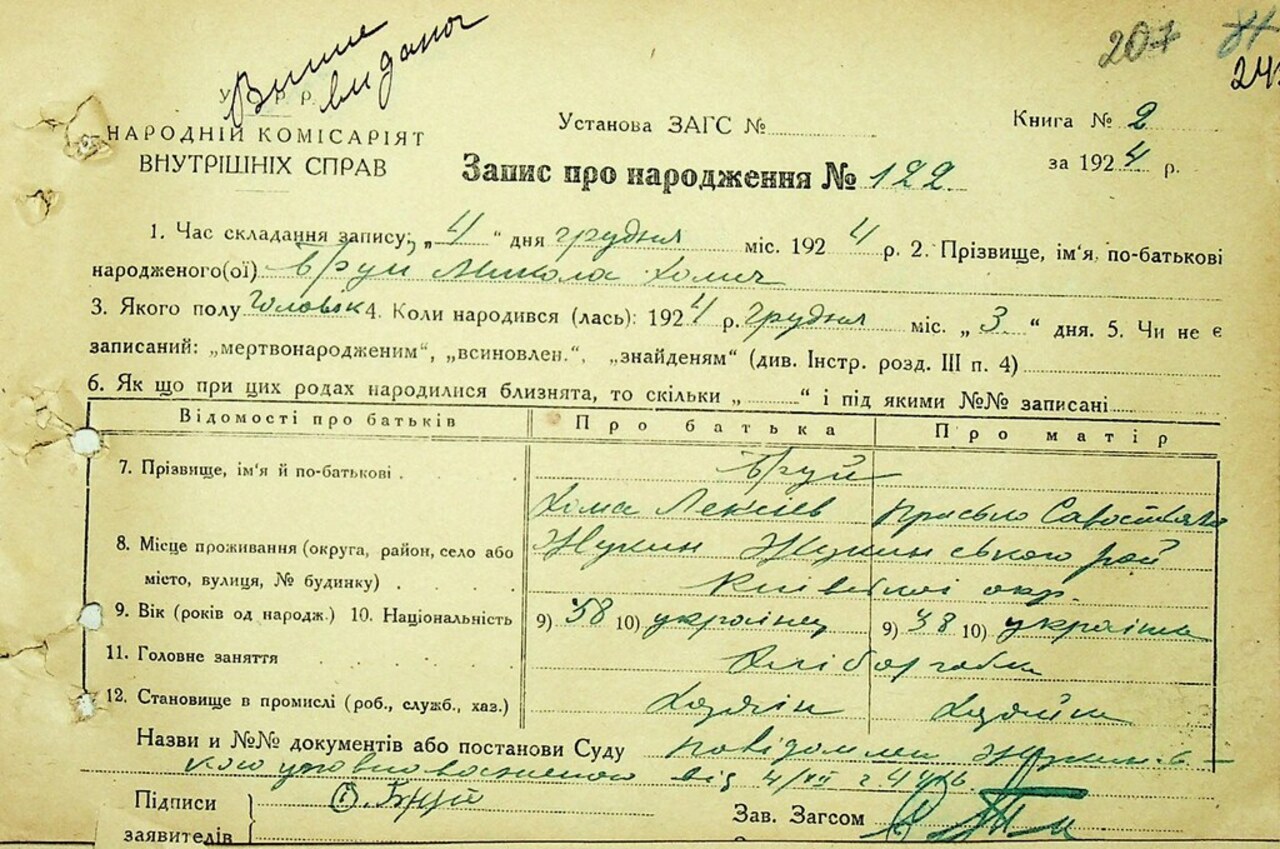 Виписи видано
207
243
У. С. Р. Р.
НАРОДНІЙ КОМІСАРІЯТ
ВНУТРІШНІХ СПРАВ
Установа ЗАГС №
Книга № 2
за 1924 р.
Запис про народження № 122
1. Час складання запису; „4“ дня грудня міс. 1924 р. 2. Прізвище, ім'я, по-батькові
народженого(ої) Бруй Микола Хомич
3. Якого полу Чоловік 4. Коли народився (лась): 1924 р. грудня міс. „3“ дня. 5. Чи не є
записаний: „мертвонародженим“, „всиновлен.“, „знайденям“ (див. Інстр. розд. III п. 4)
6. Як що при цих родах народилися близнята, то скільки „ “ і під якими №№ записані
Відомості про батьків Про батька Про матір
7. Прізвище, ім'я й по-батькові Бруй
Хома
8. Місце проживання (округа, район, село або Жукин Жукинського рай
місто, вулиця, № будинку) Київської окр.
9. Вік (років од народж.) 10. Національність 9) 38 10) українец 9) 38 10) українка
11. Головне заняття Хліборобка
12. Становище в промислі (роб., служб., хаз.) Хазяїн Хазяйка
Назви и №№ документів або постанови Суду повідомлен Жукинсь
кого уповноваженого від 4/XII
Підписи О. Бруй
заявителів
Зав. Загсом